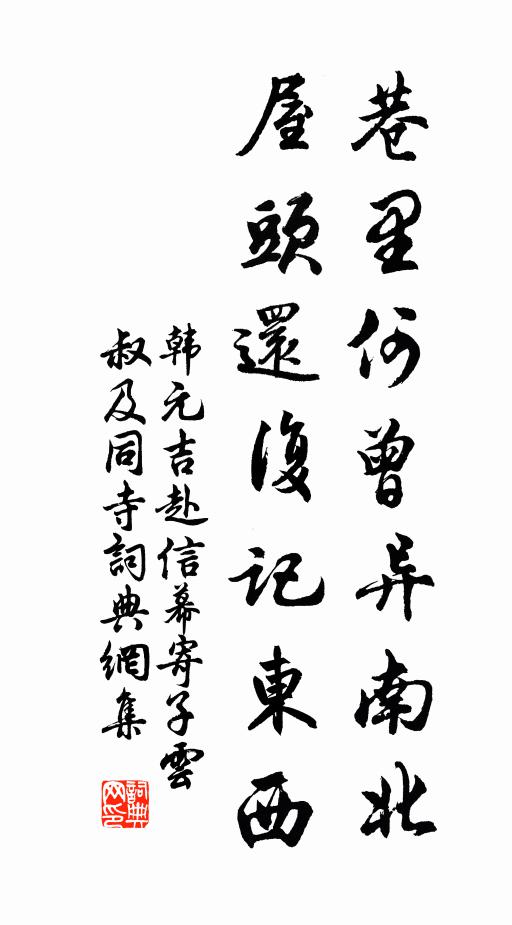 巷里何曾异南北
屋頭還復記東西
韩元吉赴信幕寄子雲
叔及同寺詞典網集
詞典
网印